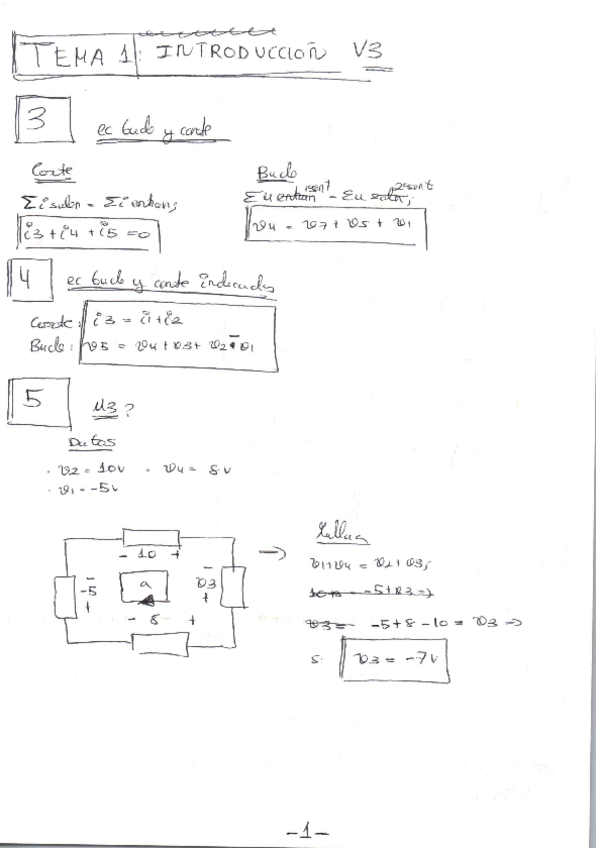 TEMA 1: INTRODUCCION V3
3 ec bucle y corte
Corte
Σi salen = Σi entran;
i3 + i4 + i5 = 0
Bucle
Σu entran 1 sent = Σu salen 2 sent;
v4 = v7 + v5 + v1
4 ec bucle y corte indicados
Corte: i3 = i1 + i2
Bucle: v5 = v4 + v3 + v2 - v1
5 u3?
Datos
· v2 = 10v · v4 = 8v
· v1 = -5v
- 10 +
- -5 +
a
- v3 +
- 8 +
→
v1+v4 = v2 + v3;
-5+v3 =>
v3 = -5 + 8 - 10 = v3 =>
v3 = -7v
-1-